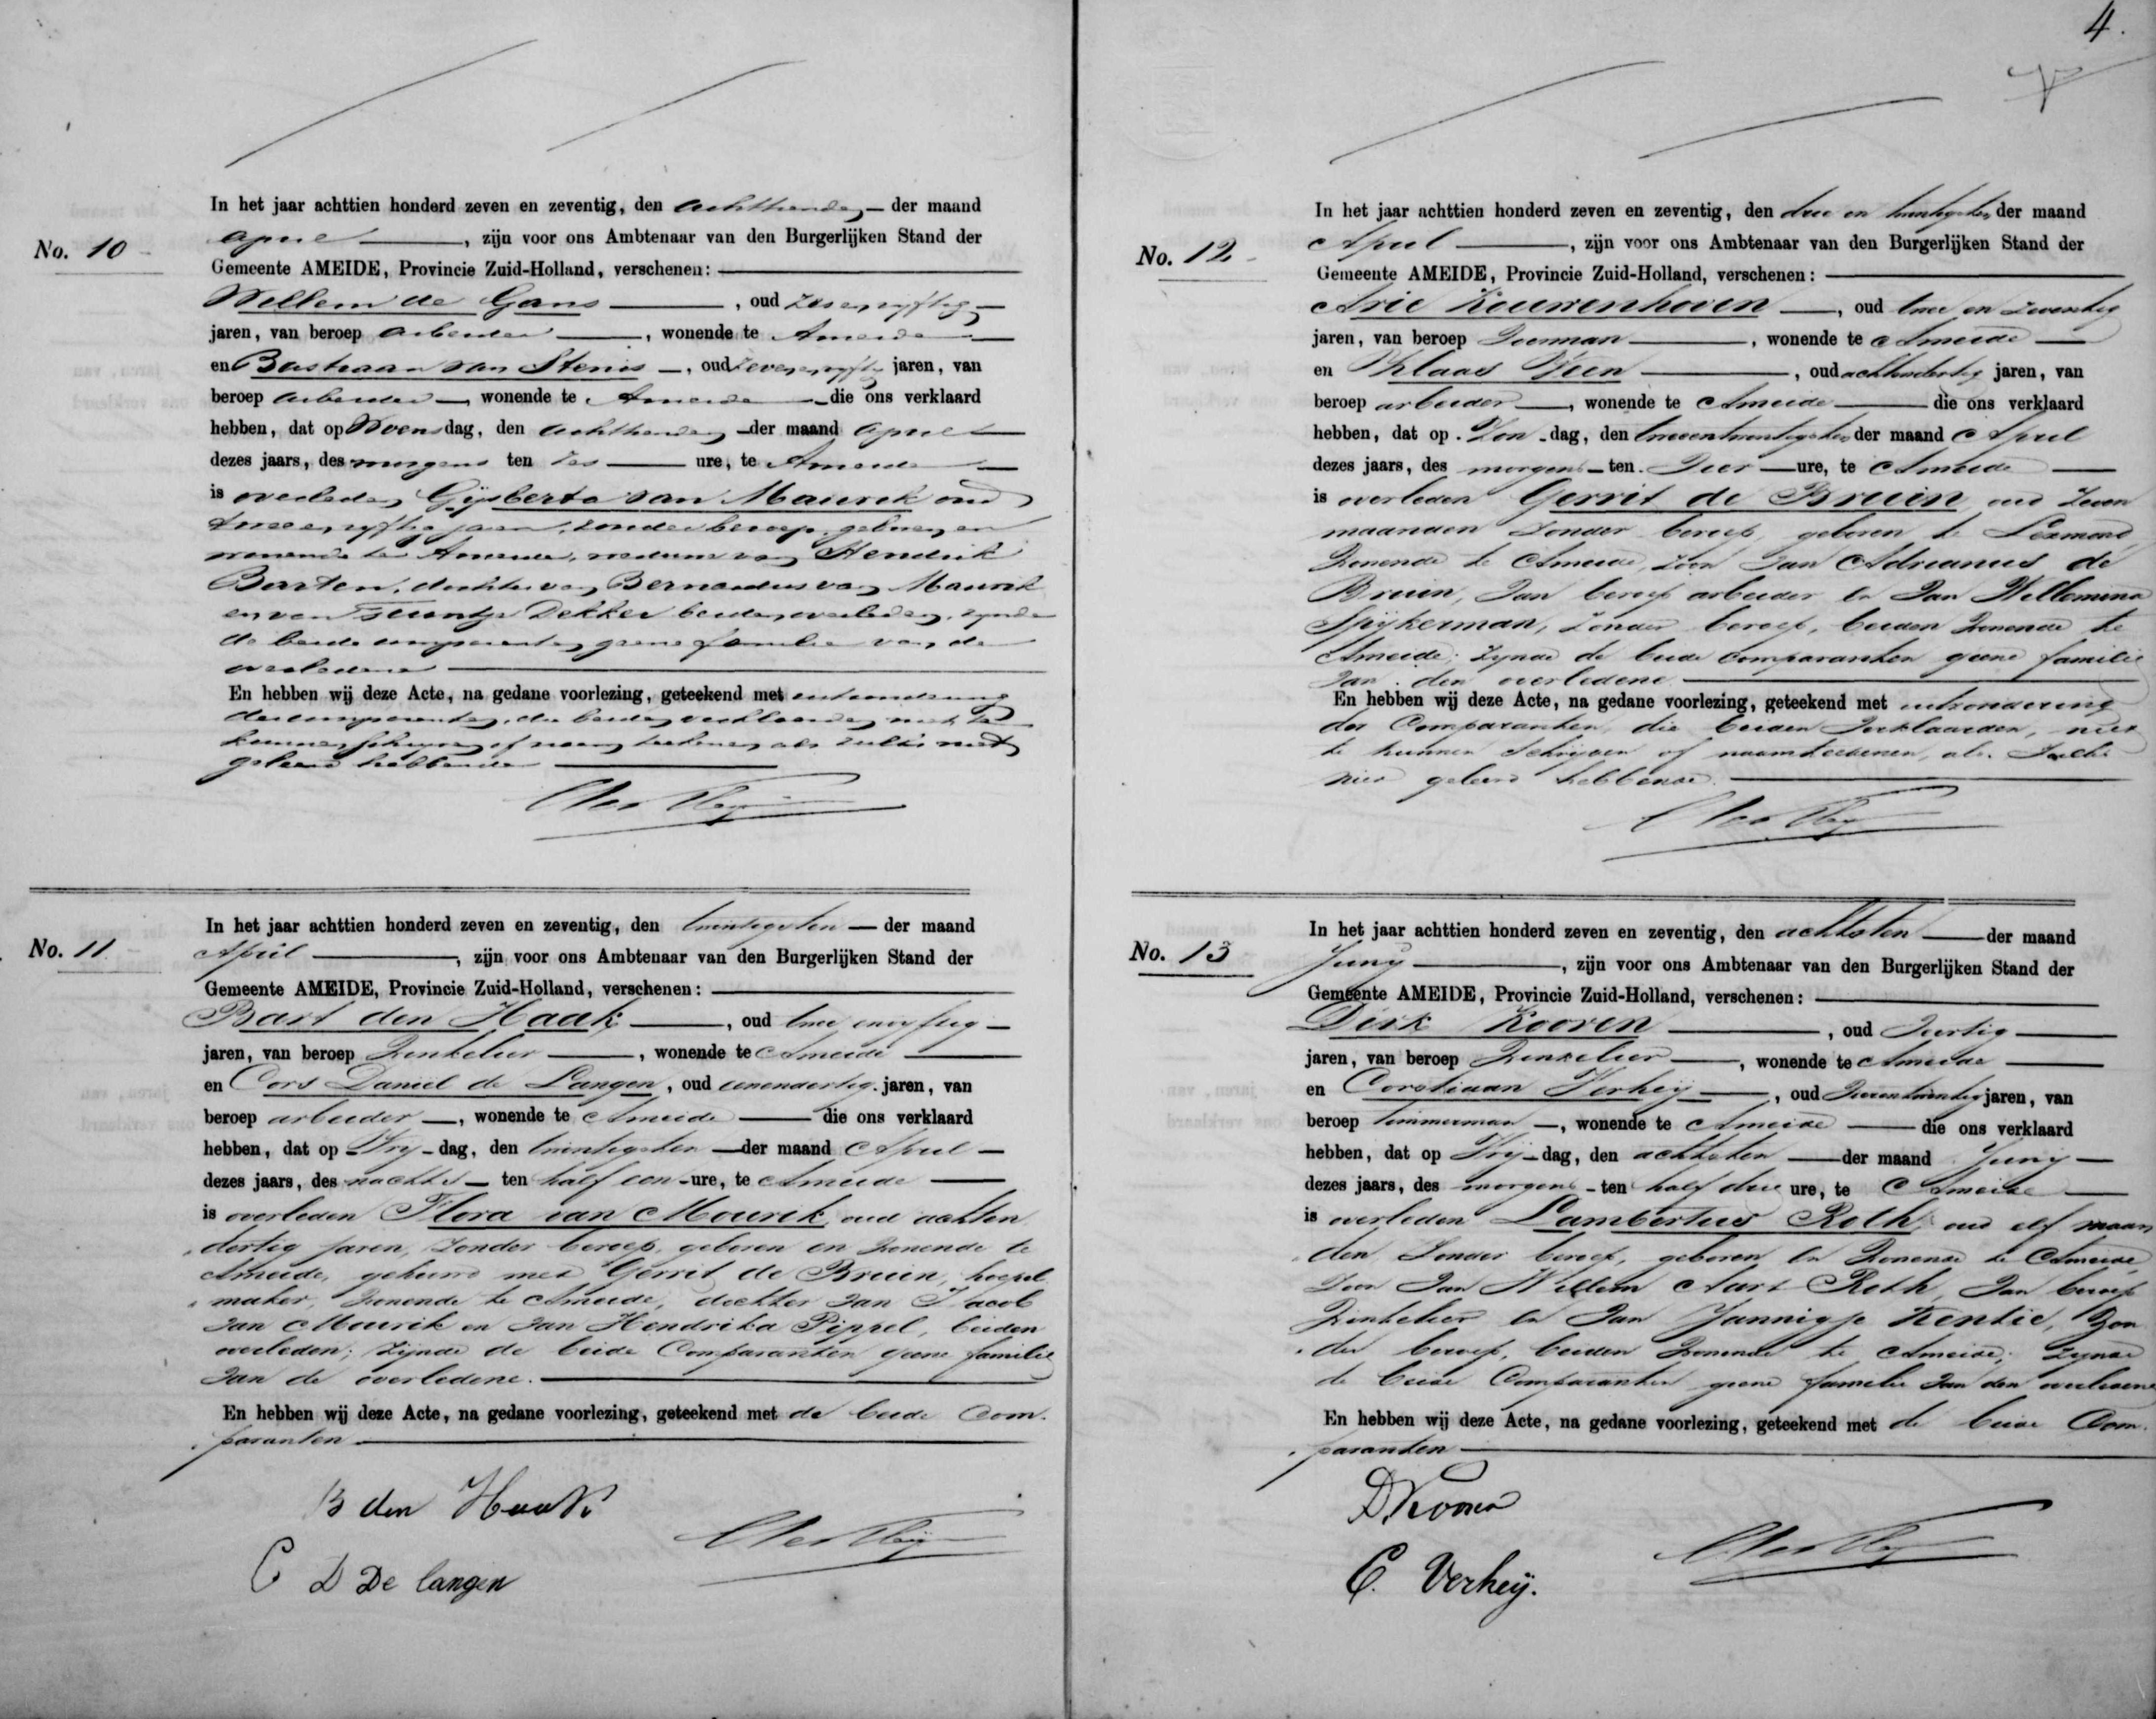 No. 10
In het jaar achttien honderd zeven en zeventig, den achttienden der maand
April, zijn voor ons Ambtenaar van den Burgerlijken Stand der
Gemeente AMEIDE, Provincie Zuid-Holland, verschenen:
Willem de Gans, oud zesenvyftig
jaren, van beroep arbeider, wonende te Ameide
en Bastiaan van Stenis, oud zevenenvyftig jaren, van
beroep arbeider, wonende te Ameide die ons verklaard
hebben, dat op Woensdag, den achttienden der maand April
dezes jaars, des morgens ten zes ure, te Ameide
is overleden Gijsberta van Maurik oud
tweeenvyftig jaren, zonder beroep, geboren en
wonende te Ameide, weduwe van Hendrik
Barten, dochter van Bernardus van Maurik
en van Teuntje Dekker beiden overleden, zynde
de beide comparanten geene familie van de
overledene
En hebben wij deze Acte, na gedane voorlezing, geteekend met uitzondering
der comparanten, die beiden verklaarden niet te
kunnen schryven of naam teekenen als zulks niet
geleerd hebbende
No. 11
In het jaar achttien honderd zeven en zeventig, den twintigsten der maand
April, zijn voor ons Ambtenaar van den Burgerlijken Stand der
Gemeente AMEIDE, Provincie Zuid-Holland, verschenen:
Bart den Haak, oud twee en vyftig
jaren, van beroep Winkelier, wonende te Ameide
en Cors Daniël de Langen, oud eenendertig jaren, van
beroep arbeider, wonende te Ameide die ons verklaard
hebben, dat op Vry-dag, den twintigsten der maand April
dezes jaars, des nachts ten half een ure, te Ameide
is overleden Flora van Mourik, oud achten
dertig jaren, zonder beroep, geboren en wonende te
Ameide, gehuwd met Gerrit de Bruin, hoepel
maker, wonende te Ameide, dochter van Jacob
van Mourik en van Hendrika Pippel, beiden
overleden; zijnde de beide Comparanten geene familie
van de overledene.
En hebben wij deze Acte, na gedane voorlezing, geteekend met de beide Com-
paranten
B den Haak
C D De langen
4.
No. 12
In het jaar achttien honderd zeven en zeventig, den drie en twintigsten der maand
April, zijn voor ons Ambtenaar van den Burgerlijken Stand der
Gemeente AMEIDE, Provincie Zuid-Holland, verschenen:
Arie Kouwenhoven, oud twee en zeventig
jaren, van beroep Veerman, wonende te Ameide
en Klaas Veen, oud achtendertig jaren, van
beroep arbeider, wonende te Ameide die ons verklaard
hebben, dat op Zon-dag, den tweeentwintigsten der maand April
dezes jaars, des morgens ten Vier ure, te Ameide
is overleden Gerrit de Bruin, oud Zeven
maanden zonder beroep, geboren te Lexmond,
wonende te Ameide, zoon van Adrianus de
Bruin, van beroep arbeider en van Willemina
Spijkerman, zonder beroep, beiden wonende te
Ameide; Zynde de beide comparanten geene familie
van den overledene.
En hebben wij deze Acte, na gedane voorlezing, geteekend met uitzondering
der Comparanten, die beiden verklaarden, niet
te kunnen schrijven of naamteekenen, als zulks
niet geleerd hebbende.
No. 13
In het jaar achttien honderd zeven en zeventig, den achtsten der maand
Juny, zijn voor ons Ambtenaar van den Burgerlijken Stand der
Gemeente AMEIDE, Provincie Zuid-Holland, verschenen:
Dirk Kooren, oud Veertig
jaren, van beroep Winkelier, wonende te Ameide
en Corstiaan Verheij, oud Vierentwintig jaren, van
beroep timmerman, wonende te Ameide die ons verklaard
hebben, dat op Vrij-dag, den achtsten der maand Juny
dezes jaars, des morgens ten half drie ure, te Ameide
is overleden Lambertus Roth, oud elf maan
den, zonder beroep, geboren en wonende te Ameide,
Zoon van Willem Aart Roth, van beroep
Winkelier en van Jannigje Kentie, Zon
der beroep, beiden wonende te Ameide; zynde
de beide Comparanten geene familie van den overledene
En hebben wij deze Acte, na gedane voorlezing, geteekend met de beide Com-
paranten
D Kooren
C. Verheij.